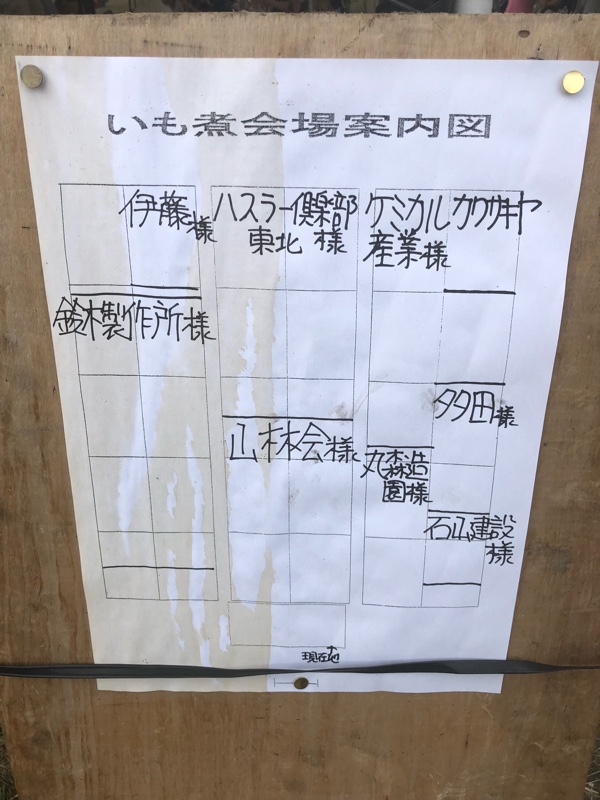 いも煮会場案内図
伊藤様
ハスラー倶楽部
東北 様
ケミカルカワサキヤ
産業様
鈴木製作所様
多田様
山林会様
丸森造
園様
石山建設
様
現在地